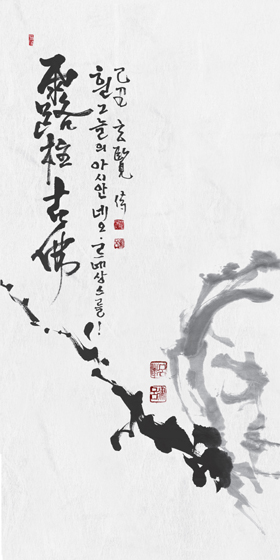 露柱古佛
흰 그늘의 아시안 네오·르네상스를!
己丑 玄覽